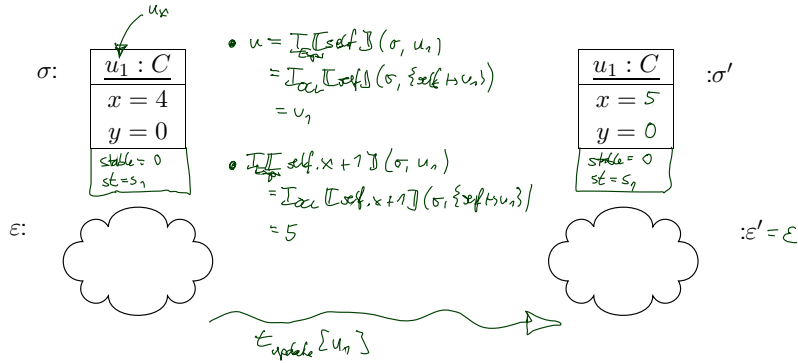 uₓ
σ:
u₁ : C
x = 4
y = 0
stable = 0
st = s₁
• u = I_Expr⟦self⟧(σ, u₁)
= I_OCL⟦self⟧(σ, {self ↦ u₁})
= u₁
• I_Expr⟦self.x + 1⟧(σ, u₁)
= I_OCL⟦self.x + 1⟧(σ, {self ↦ u₁})
= 5
u₁ : C
x = 5
y = 0
stable = 0
st = s₁
:σ′
ε:
:ε′ = ε
t_update[u₁]